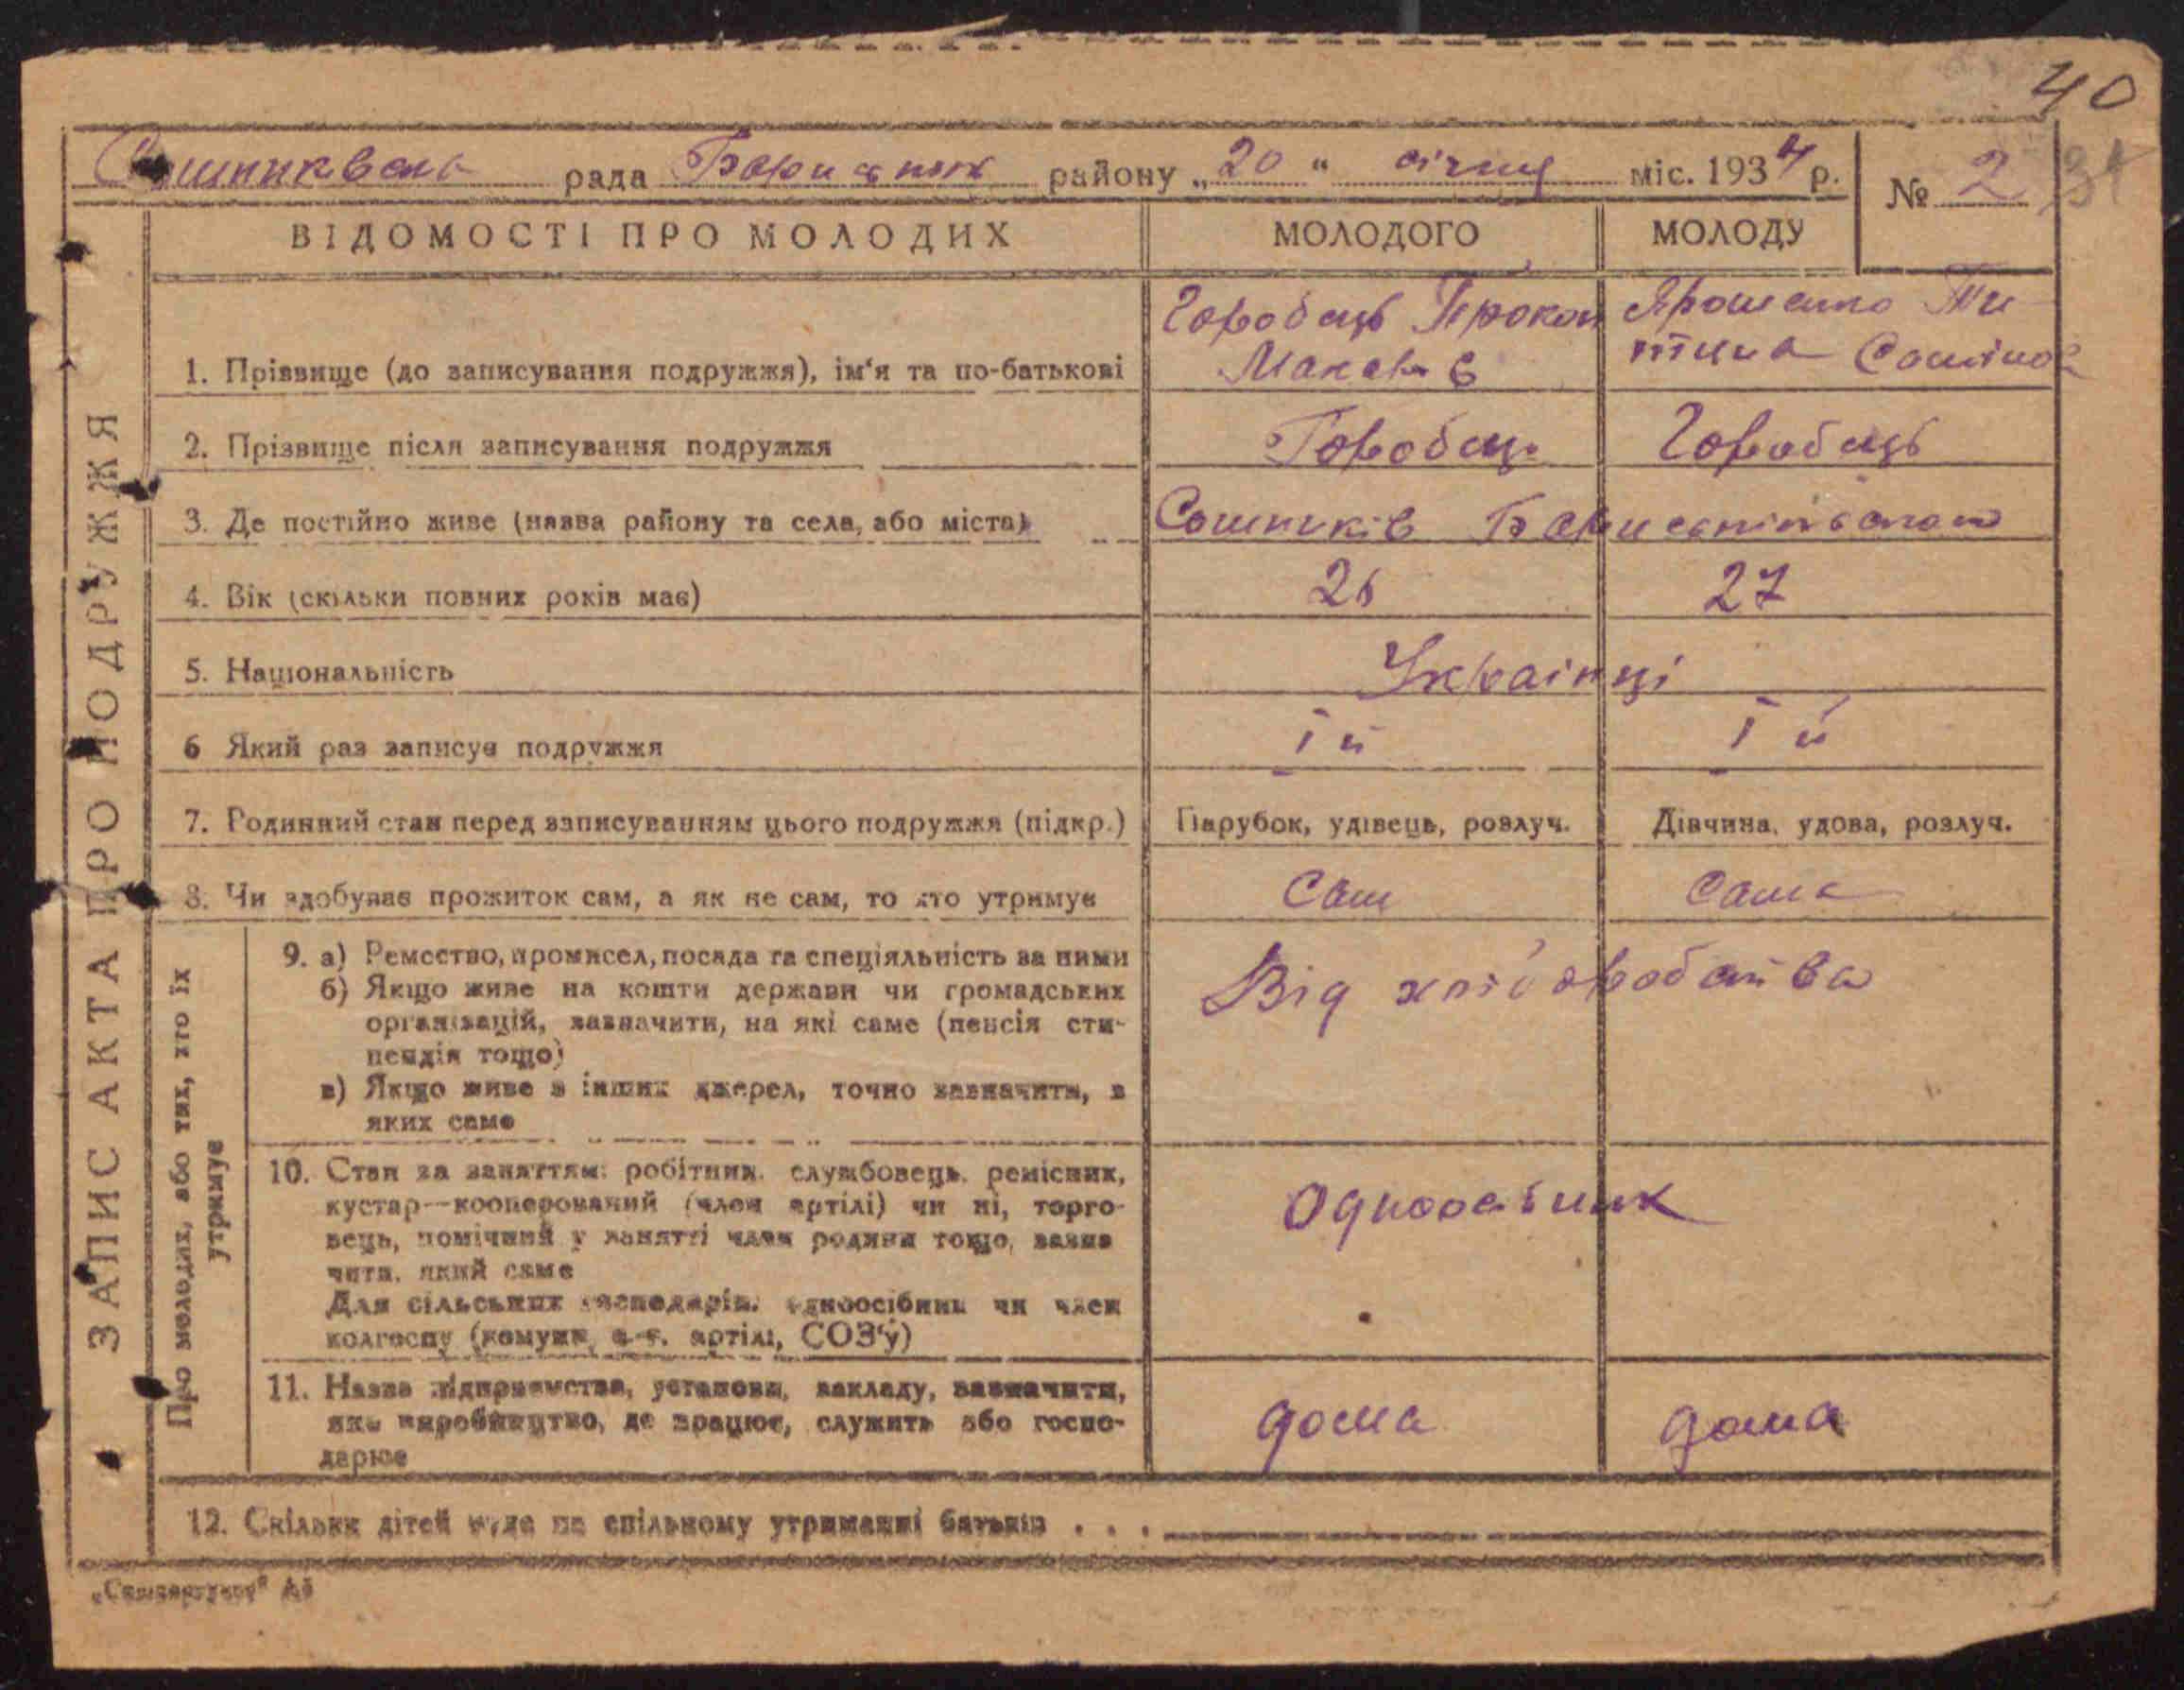 40
рада Бориспіл району „20“ січня міс. 1934 р. № 2 31
ВІДОМОСТІ ПРО МОЛОДИХ МОЛОДОГО МОЛОДУ
Горобець Прокоп Ярошенко
1. Прізвище (до записування подружжя), ім'я та по-батькові Макарів
2. Прізвище після записування подружжя Горобець Горобець
3. Де постійно живе (назва району та села, або міста) Сошників
4. Вік (скільки повних років має) 26 27
5. Національність Українці
6 Який раз записує подружжя І й І й
7. Родинний стан перед записуванням цього подружжя (підкр.) Парубок, удівець, розлуч. Дівчина, удова, розлуч.
8. Чи здобуває прожиток сам, а як не сам, то хто утримує Сам Сама
9. а) Ремество, промисел, посада та спеціяльність за ними
б) Якщо живе на кошти держави чи громадських Від хліборобства
організацій, зазначити, на які саме (пенсія сти-
пендія тощо)
в) Якщо живе з інших джерел, точно зазначити, з
яких саме
10. Стан за заняттям: робітник, службовець, ремісник,
кустар—кооперований (член артілі) чи ні, торго- Одноосібник
вець, помічний у занятті член родини тощо, зазна
чити, який саме
Для сільських господарів: одноосібник чи член
колгоспу (комуни, с.-г. артілі, СОЗ'у)
11. Назва підприємства, установи, закладу, зазначити,
яке виробництво, де працює, служить або госпо- дома дома
дарює
12. Скільки дітей буде на спільному утриманні батьків . . .
ЗАПИС АКТА ПРО ПОДРУЖЖЯ
Про молодих, або тих, хто їх
утримує